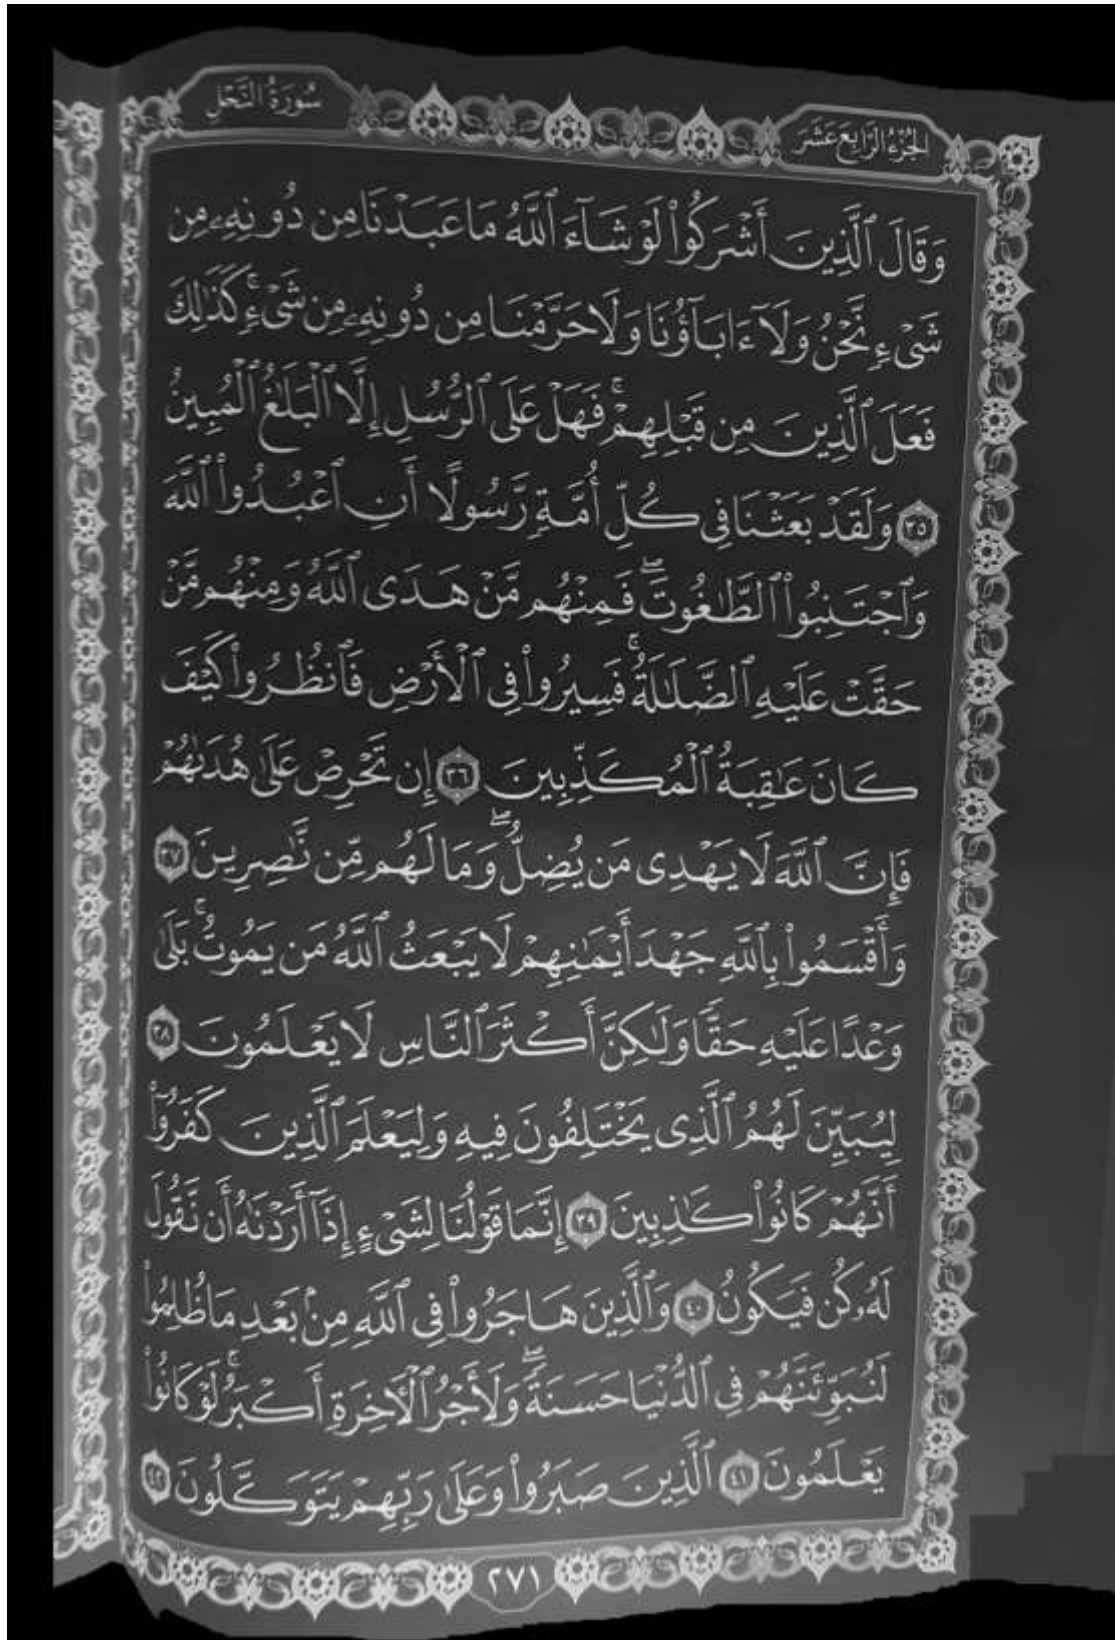 سُورَةُ النَّحْلِ
الجُزْءُ الرَّابِعَ عَشَرَ
وَقَالَ ٱلَّذِينَ أَشْرَكُوا۟ لَوْ شَآءَ ٱللَّهُ مَا عَبَدْنَا مِن دُونِهِۦ مِن
شَىْءٍ نَّحْنُ وَلَآ ءَابَآؤُنَا وَلَا حَرَّمْنَا مِن دُونِهِۦ مِن شَىْءٍ ۚ كَذَٰلِكَ
فَعَلَ ٱلَّذِينَ مِن قَبْلِهِمْ ۚ فَهَلْ عَلَى ٱلرُّسُلِ إِلَّا ٱلْبَلَٰغُ ٱلْمُبِينُ
٣٥ وَلَقَدْ بَعَثْنَا فِى كُلِّ أُمَّةٍ رَّسُولًا أَنِ ٱعْبُدُوا۟ ٱللَّهَ
وَٱجْتَنِبُوا۟ ٱلطَّٰغُوتَ ۖ فَمِنْهُم مَّنْ هَدَى ٱللَّهُ وَمِنْهُم مَّنْ
حَقَّتْ عَلَيْهِ ٱلضَّلَٰلَةُ ۚ فَسِيرُوا۟ فِى ٱلْأَرْضِ فَٱنظُرُوا۟ كَيْفَ
كَانَ عَٰقِبَةُ ٱلْمُكَذِّبِينَ ٣٦ إِن تَحْرِصْ عَلَىٰ هُدَىٰهُمْ
فَإِنَّ ٱللَّهَ لَا يَهْدِى مَن يُضِلُّ ۖ وَمَا لَهُم مِّن نَّٰصِرِينَ ٣٧
وَأَقْسَمُوا۟ بِٱللَّهِ جَهْدَ أَيْمَٰنِهِمْ لَا يَبْعَثُ ٱللَّهُ مَن يَمُوتُ ۚ بَلَىٰ
وَعْدًا عَلَيْهِ حَقًّا وَلَٰكِنَّ أَكْثَرَ ٱلنَّاسِ لَا يَعْلَمُونَ ٣٨
لِيُبَيِّنَ لَهُمُ ٱلَّذِى يَخْتَلِفُونَ فِيهِ وَلِيَعْلَمَ ٱلَّذِينَ كَفَرُوٓا۟
أَنَّهُمْ كَانُوا۟ كَٰذِبِينَ ٣٩ إِنَّمَا قَوْلُنَا لِشَىْءٍ إِذَآ أَرَدْنَٰهُ أَن نَّقُولَ
لَهُۥ كُن فَيَكُونُ ٤٠ وَٱلَّذِينَ هَاجَرُوا۟ فِى ٱللَّهِ مِنۢ بَعْدِ مَا ظُلِمُوا۟
لَنُبَوِّئَنَّهُمْ فِى ٱلدُّنْيَا حَسَنَةً ۖ وَلَأَجْرُ ٱلْءَاخِرَةِ أَكْبَرُ ۚ لَوْ كَانُوا۟
يَعْلَمُونَ ٤١ ٱلَّذِينَ صَبَرُوا۟ وَعَلَىٰ رَبِّهِمْ يَتَوَكَّلُونَ ٤٢
٢٧١